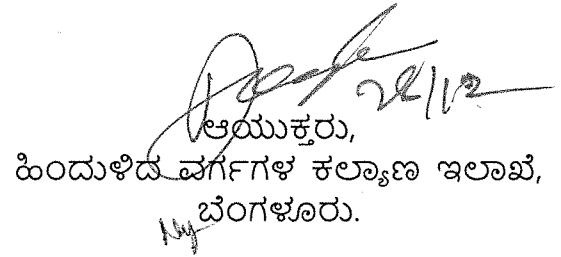 ಆಯುಕ್ತರು,
ಹಿಂದುಳಿದ ವರ್ಗಗಳ ಕಲ್ಯಾಣ ಇಲಾಖೆ,
ಬೆಂಗಳೂರು.